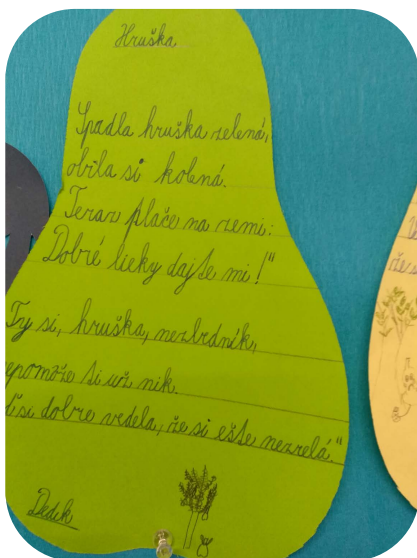 Hruška
Spadla hruška zelená,
obila si kolená.
Teraz plače na zemi:
Dobré lieky dajte mi!"
Ty si, hruška, nezbedník,
epomože ti už nik.
si dobre vedela, že si ešte nezrelá."
Dedik